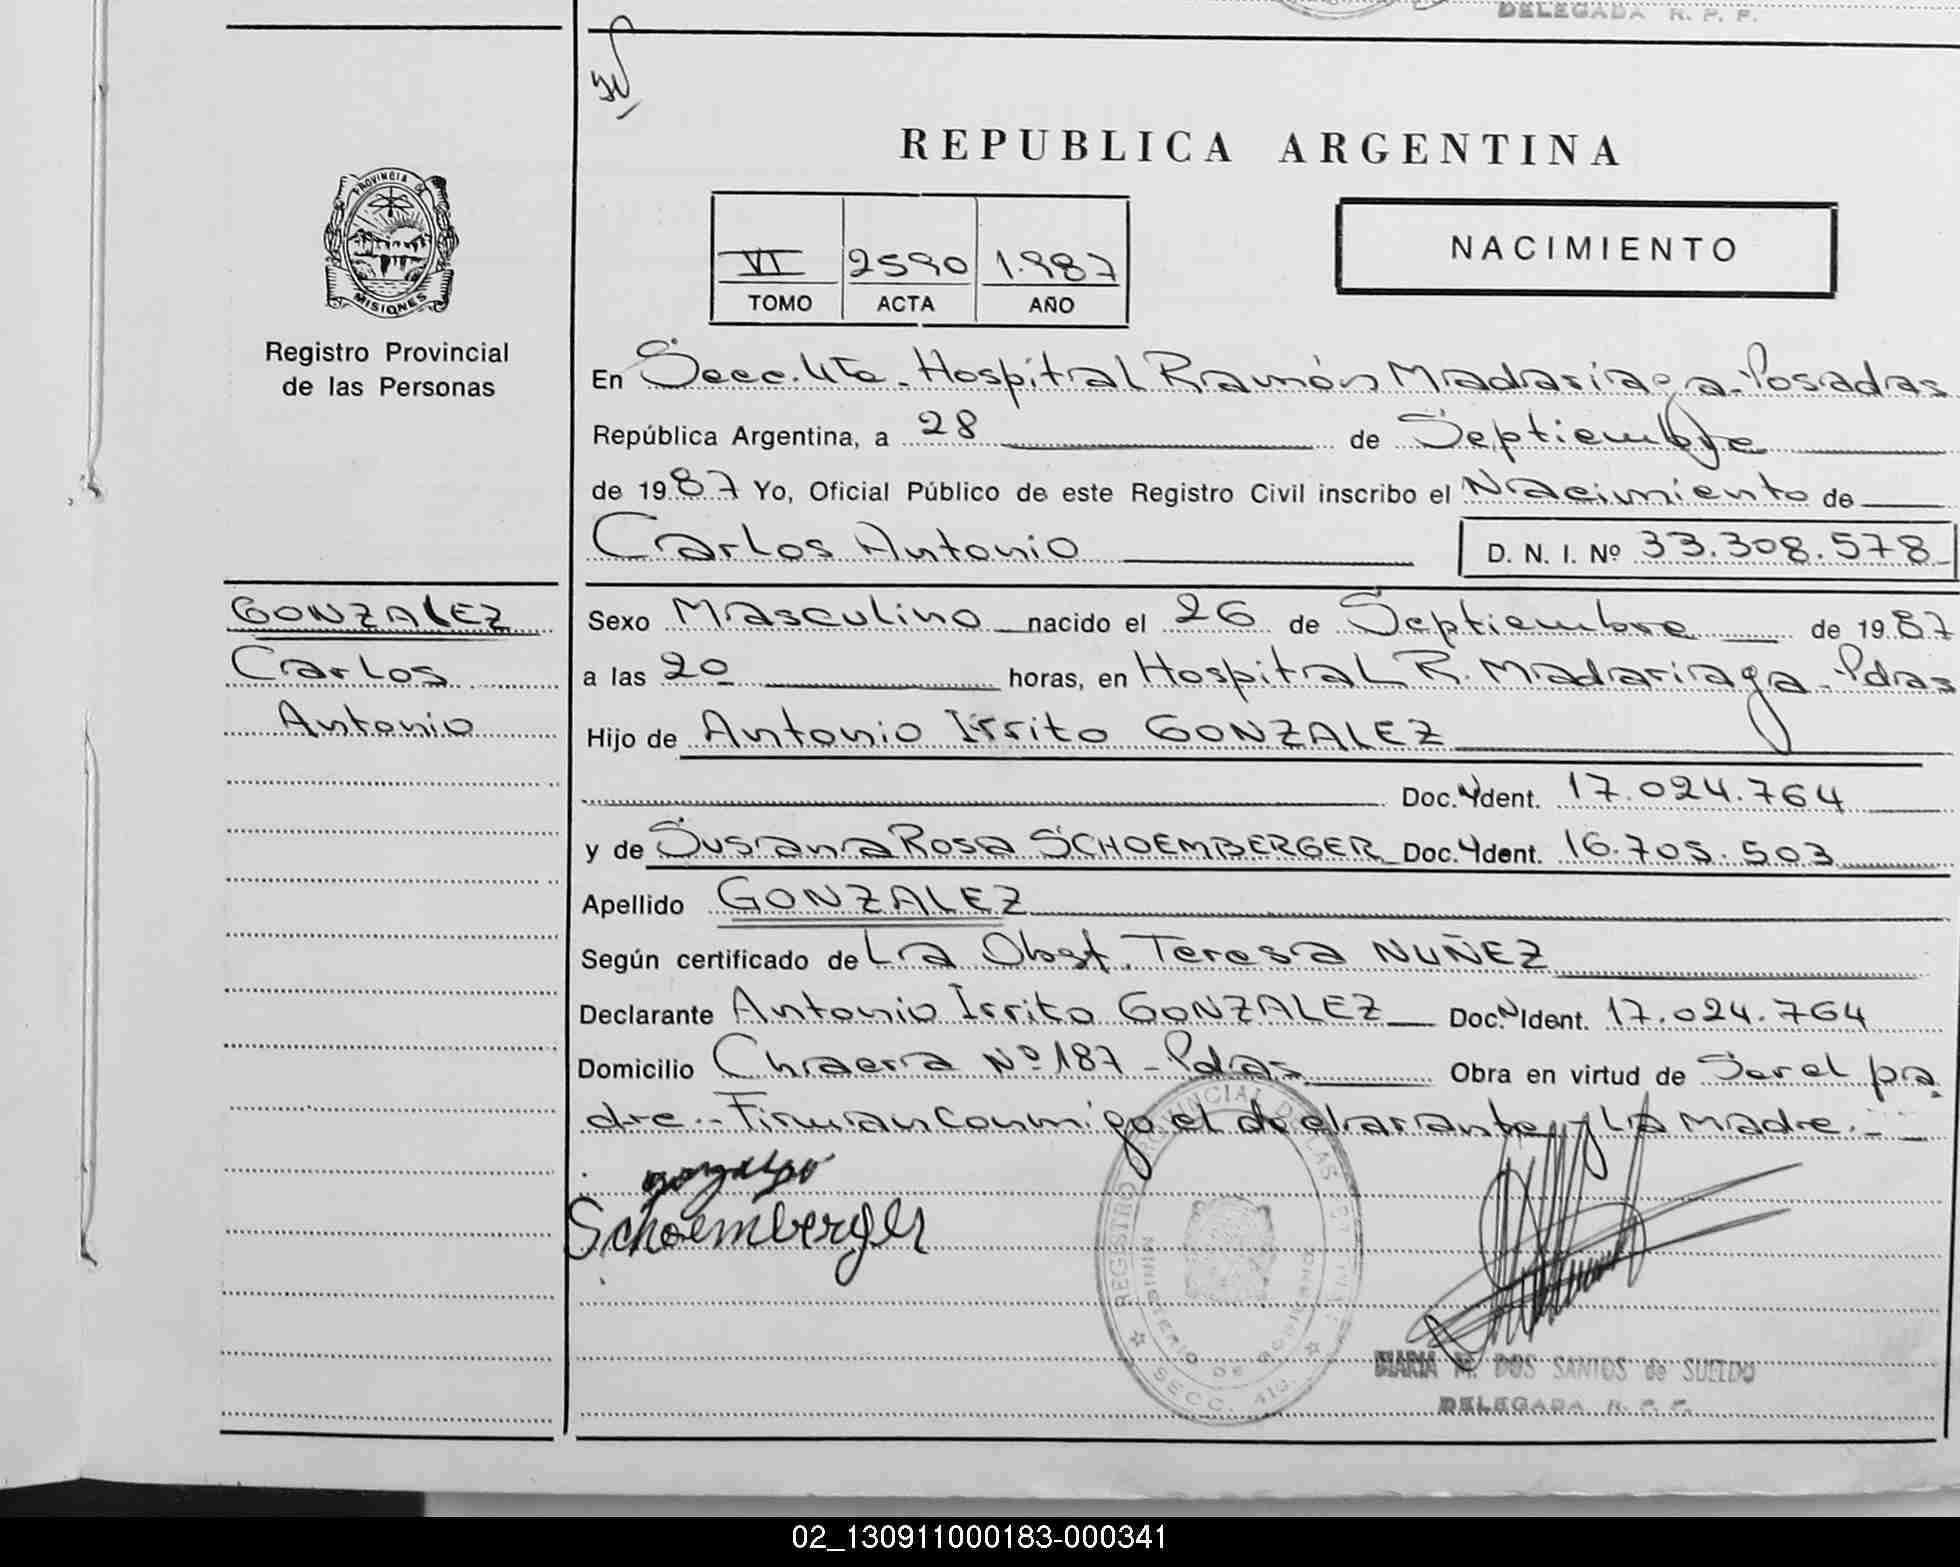 DELEGADA R. P. P.
REPUBLICA ARGENTINA
PROVINCIA DE
MISIONES
Registro Provincial
de las Personas
VI 2590 1.987
TOMO ACTA AÑO
NACIMIENTO
En Secc. 4ta. Hospital Ramón Madariaga-Posadas
República Argentina, a 28 de Septiembre
de 1987 Yo, Oficial Público de este Registro Civil inscribo el Nacimiento de
Carlos Antonio D. N. I. Nº 33.308.578
GONZALEZ
Carlos
Antonio
Sexo Masculino nacido el 26 de Septiembre de 1987
a las 20 horas, en Hospital R. Madariaga-Pdas
Hijo de Antonio Irrito GONZALEZ
Doc. Ident. 17.024.764
y de Susana Rosa SCHOEMBERGER Doc. Ident. 16.705.503
Apellido GONZALEZ
Según certificado de La Obst. Teresa NUÑEZ
Declarante Antonio Irrito GONZALEZ Doc. Ident. 17.024.764
Domicilio Chacra Nº 187 - Pdas Obra en virtud de Ser el pa
dre.- Firman conmigo el declarante y la madre.-
Schoemberger
REGISTRO PROVINCIAL DE LAS
MINISTERIO DE GOBIERNO
SECC. 4ta.
MARIA M. DOS SANTOS de SUELDO
DELEGADA R. P. P.
02_130911000183-000341